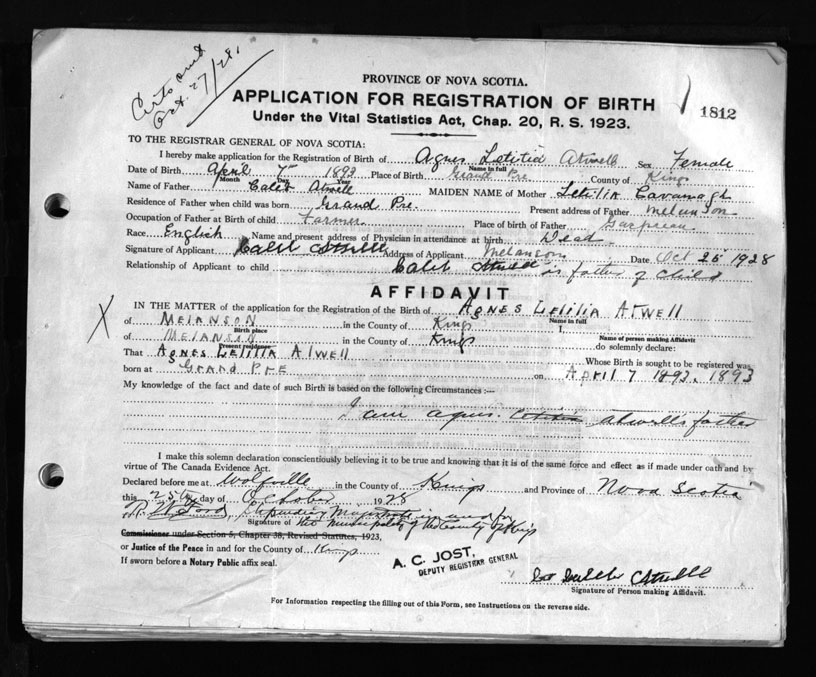 Oct. 27/28.
PROVINCE OF NOVA SCOTIA.
APPLICATION FOR REGISTRATION OF BIRTH
1812
Under the Vital Statistics Act, Chap. 20, R. S. 1923.
TO THE REGISTRAR GENERAL OF NOVA SCOTIA:
I hereby make application for the Registration of Birth of Agnes Letitia Atwell Sex Female
Name in full
Date of Birth April 7 1893 Place of Birth Grand Pre County of Kings
Month Day Year
Name of Father Caleb Atwell MAIDEN NAME of Mother Letitia Cavanagh
Residence of Father when child was born Grand Pre. Present address of Father Melanson
Occupation of Father at Birth of child Farmer Place of birth of Father Gaspreau
Race English Name and present address of Physician in attendance at birth Dead
Signature of Applicant Caleb Atwell Address of Applicant Melanson Date Oct 25 1928
Relationship of Applicant to child Caleb Atwell is father of child
AFFIDAVIT
X
IN THE MATTER of the application for the Registration of the Birth of AGNES LETITIA ATWELL
Name in full
of MELANSON in the County of Kings I,
Birth place Name of person making Affidavit
of MELANSON in the County of Kings do solemnly declare:
Present residence
That AGNES LETITIA ATWELL Whose Birth is sought to be registered was
born at GRAND PRE on APRIL 7 1893. 1893
My knowledge of the fact and date of such Birth is based on the following Circumstances:—
I am agnes atwells father
I make this solemn declaration conscientiously believing it to be true and knowing that it is of the same force and effect as if made under oath and by
virtue of The Canada Evidence Act.
Declared before me at Wolfville in the County of Kings and Province of Nova Scotia
this 25th day of October 1928
R W Ford, Stipendiary Magistrate in and for
Signature of the Municipality of the County of Kings
Commissioner under Section 5, Chapter 38, Revised Statutes, 1923,
or Justice of the Peace in and for the County of Kings
If sworn before a Notary Public affix seal.
A. C. JOST,
DEPUTY REGISTRAR GENERAL
Atwell
Signature of Person making Affidavit.
For Information respecting the filling out of this Form, see Instructions on the reverse side.